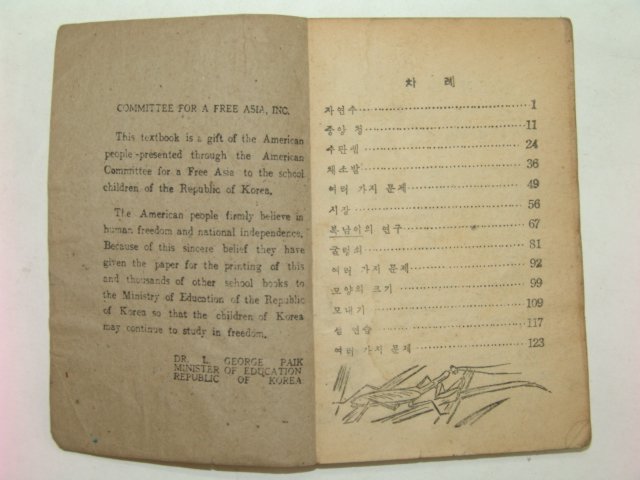 COMMITTEE FOR A FREE ASIA, INC.
This textbook is a gift of the American
people-presented through the American
Committee for a Free Asia to the school
children of the Republic of Korea.
The American people firmly believe in
human freedom and national independence.
Because of this sincere belief they have
given the paper for the printing of this
and thousands of other school books to
the Ministry of Education of the Republic
of Korea so that the children of Korea
may continue to study in freedom.
DR. L. GEORGE PAIK
MINISTER OF EDUCATION
REPUBLIC OF KOREA
차 례
자연수 1
중앙 청 11
주판셈 24
채소밭 36
여러 가지 문제 49
시장 56
복남이의 연구 67
굴렁쇠 81
여러 가지 문제 92
모양의 크기 99
모내기 109
셈 연습 117
여러 가지 문제 123